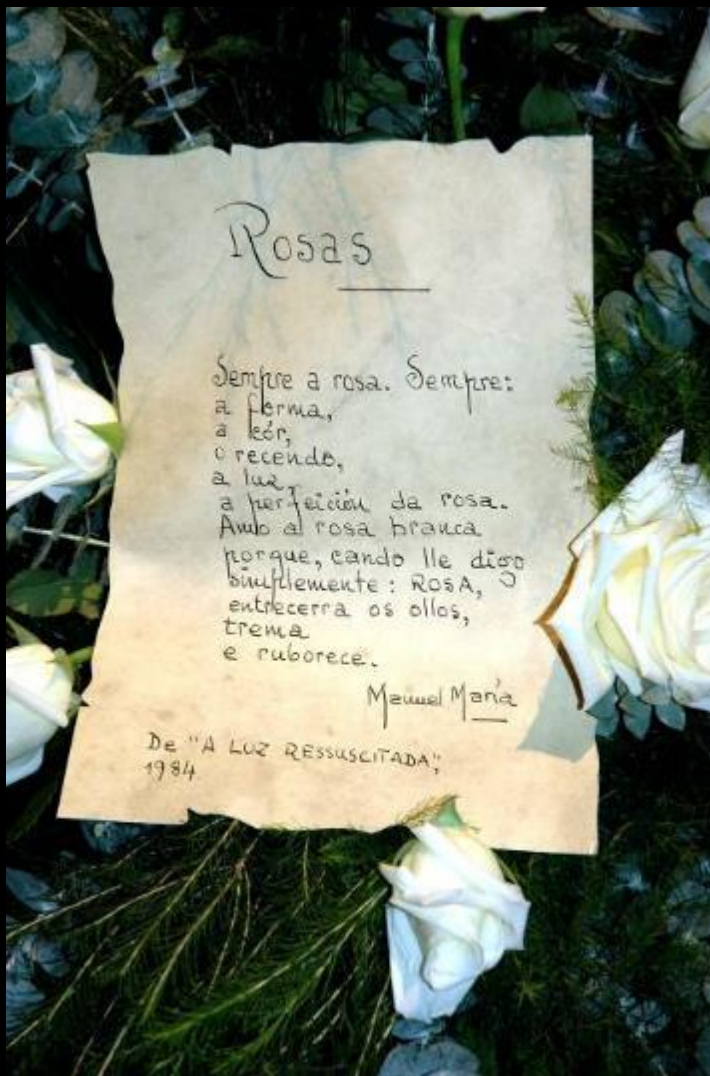 Rosas
Sempre a rosa. Sempre:
a forma,
a cór,
o recendo,
a luz,
a perfeición da rosa.
Amo a rosa branca
porque, cando lle digo
simplemente: ROSA,
entrecerra os ollos,
trema
e ruborece.
Manuel María
De "A LUZ RESSUSCITADA",
1984